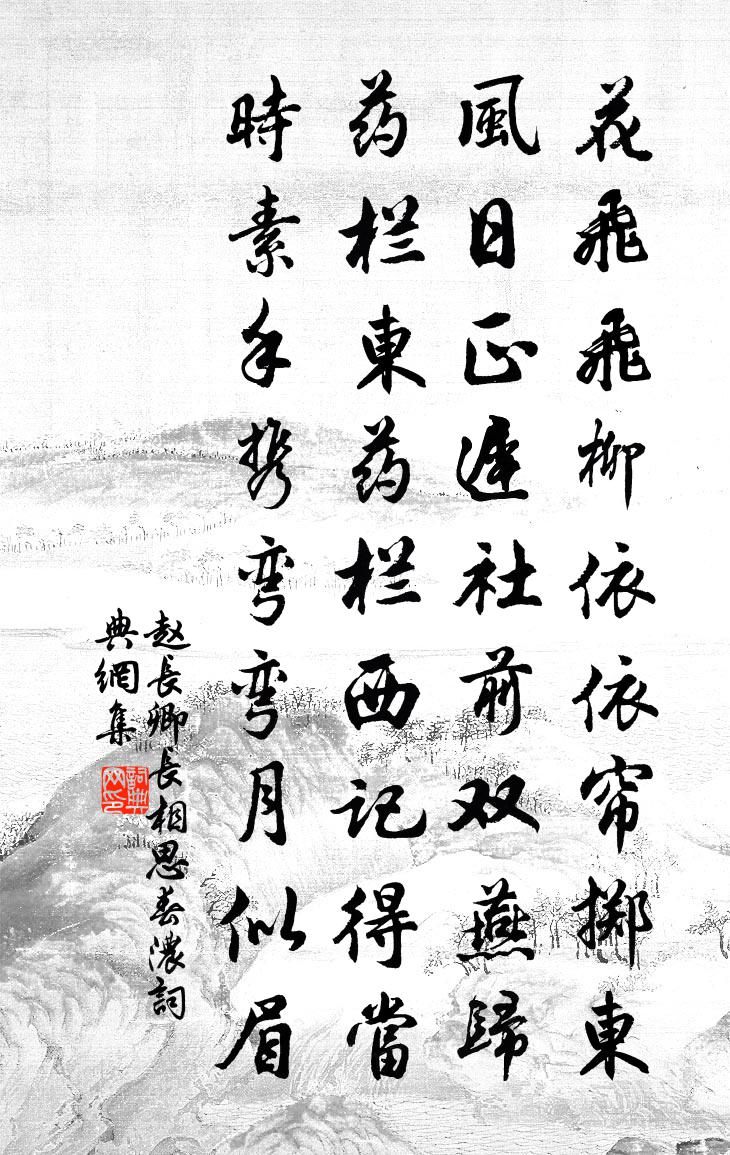 花飛飛柳依依帘掷東
風日正遲社前双燕歸
药栏東药栏西記得當
時素手携弯弯月似眉
赵長卿長相思春濃詞
典網集
詞典网印